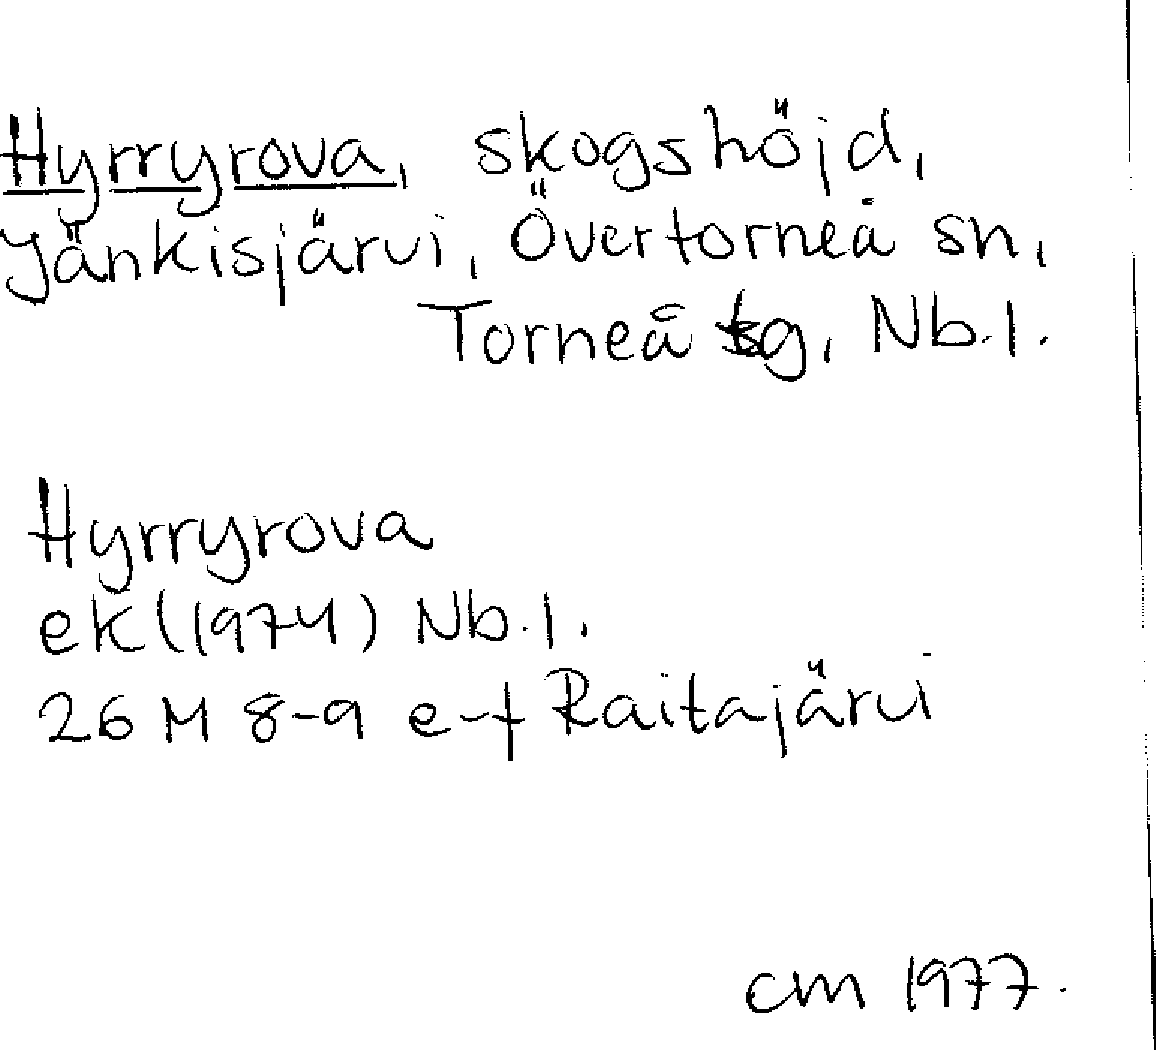 Hyrryrova, skogshöjd,
Jänkisjärvi, Övertorneå sn,
Torneå tg, Nb.l.
Hyrryrova
ek (1974) Nb.l.
26 M 8-9 e-f Raitajärvi
cm 1977.